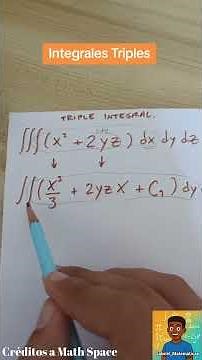 Integrales Triples
TRIPLE INTEGRAL.
∭(x² + 2yz) dx dy dz
∬(x³/3 + 2yzx + C₁) dy
Créditos a Math Space